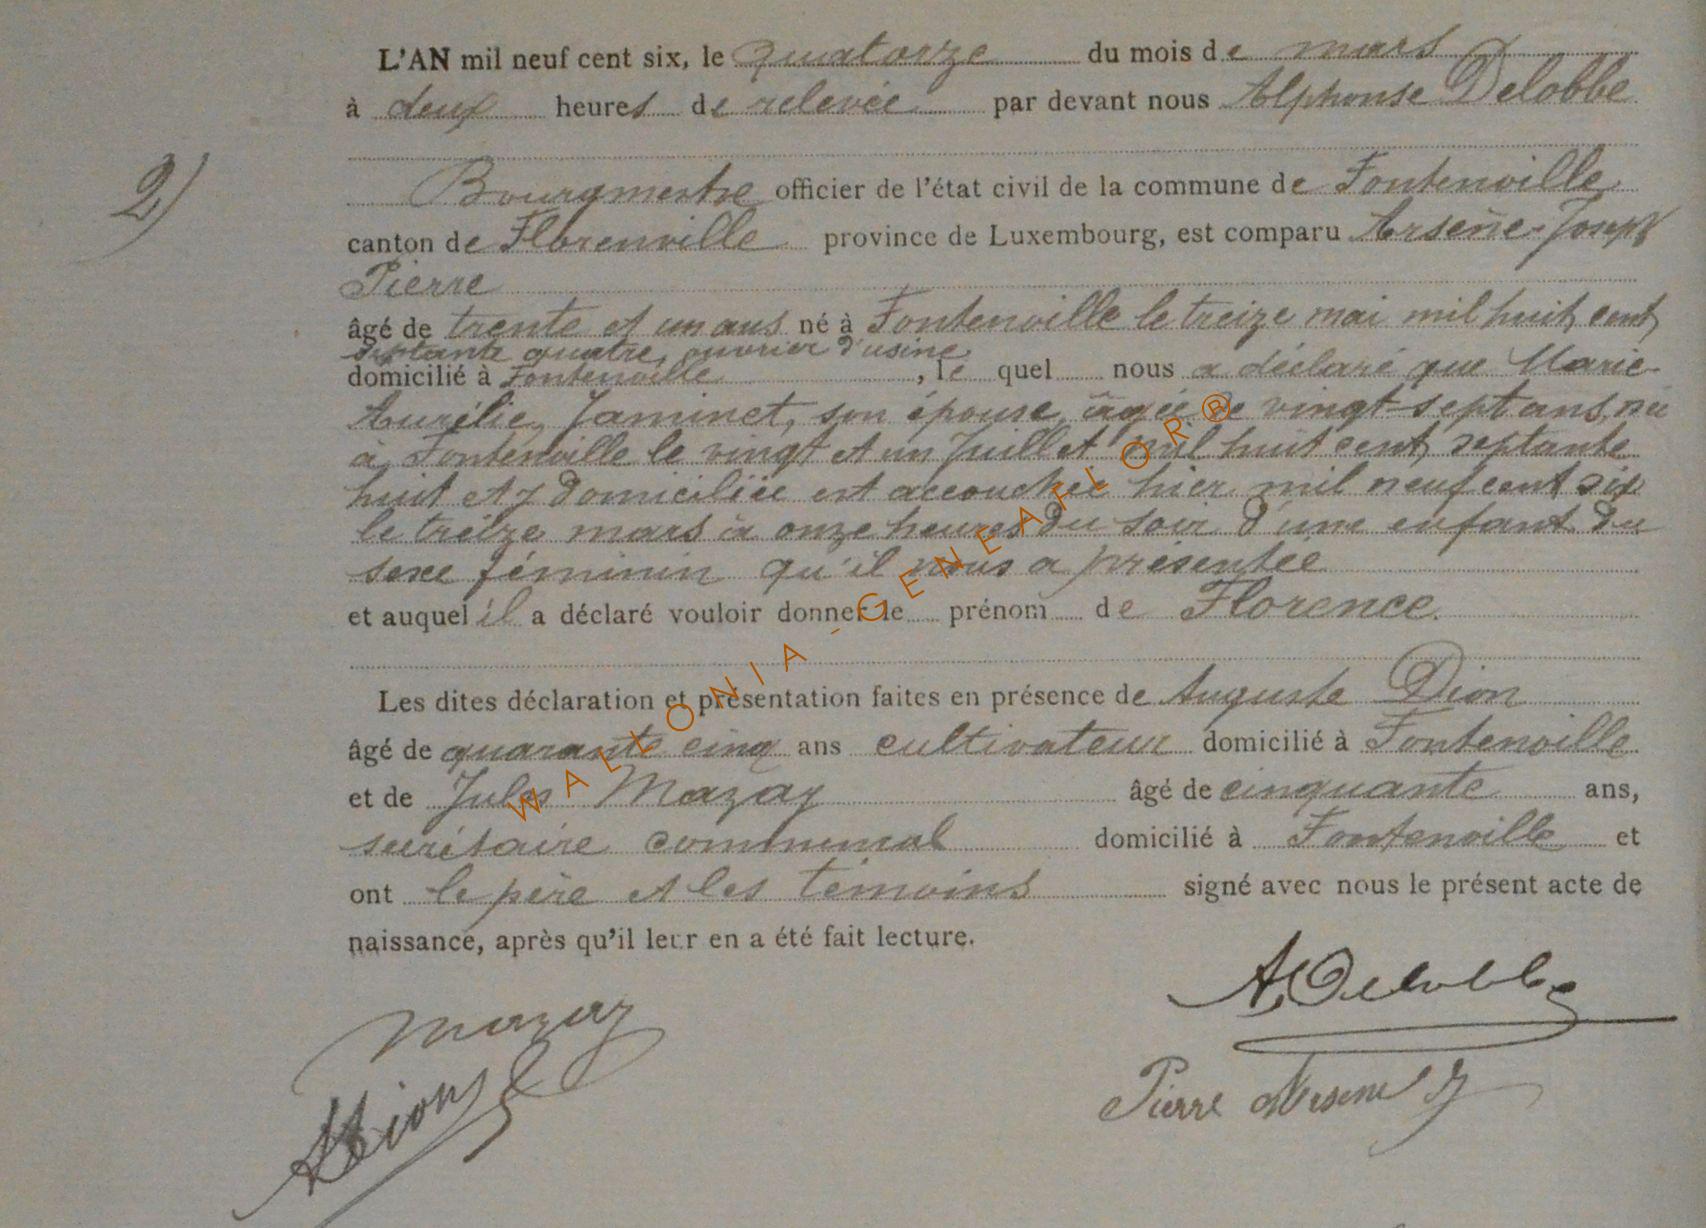 L'AN mil neuf cent six, le quatorze du mois de mars
à deux heures de relevée par devant nous Alphonse Delobbe
2)
Bourgmestre officier de l'état civil de la commune de Fontenoille
canton de Florenville province de Luxembourg, est comparu Arsène-Joseph
Pierre
âgé de trente et un ans né à Fontenoille le treize mai mil huit cent
septante quatre, ouvrier d'usine
domicilié à Fontenoille, le quel nous a déclaré que Marie
Aurélie, Jaminet, son épouse, âgée de vingt-sept ans, née
à Fontenoille le vingt et un Juillet mil huit cent septante
huit et y domiciliée est accouchée hier mil neuf cent six
le treize mars à onze heures du soir d'une enfant du
sexe féminin qu'il nous a présentée
et auquel il a déclaré vouloir donner le prénom de Florence.
Les dites déclaration et présentation faites en présence de Auguste Dion
âgé de quarante cinq ans cultivateur domicilié à Fontenoille
et de Jules Mazay âgé de cinquante ans,
secrétaire communal domicilié à Fontenoille et
ont le père et les témoins signé avec nous le présent acte de
naissance, après qu'il leur en a été fait lecture.
A Delobbe
Mazay
Pierre Arsène J
A Dion
WALLONIA-GENEAFLOR®